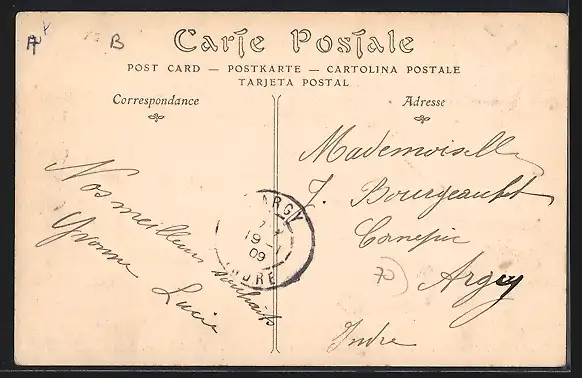 A B
Carte Postale
POST CARD — POSTKARTE — CARTOLINA POSTALE
TARJETA POSTAL
Correspondance
Nos meilleurs souhaits
Yvonne Lucie
Adresse
Mademoiselle
J. Bourgeault
Argy
Indre
ARGY
19
09
INDRE
70